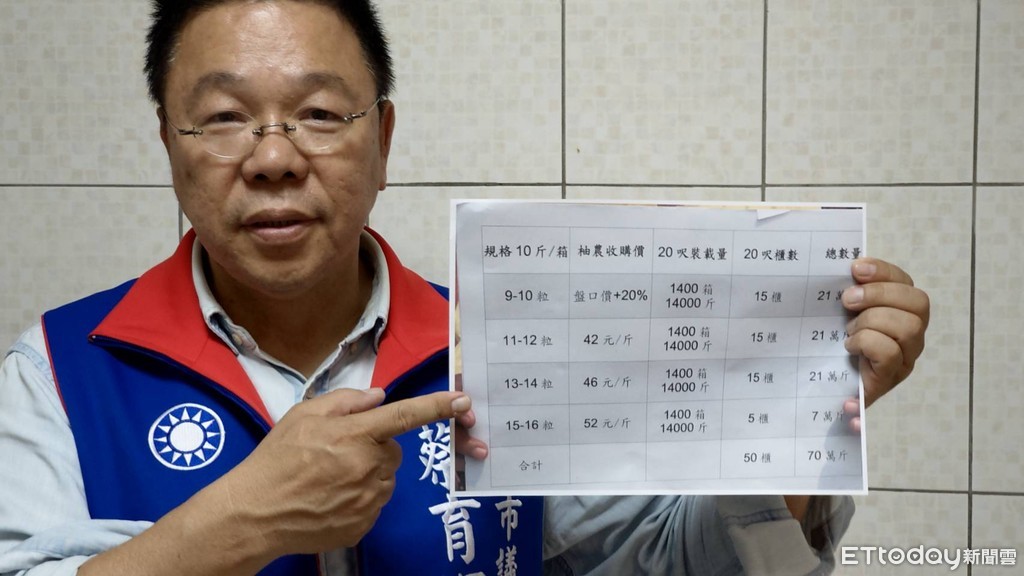 規格 10 斤/箱 柚農收購價 20 呎裝載量 20 呎櫃數 總數量
9-10 粒 盤口價+20% 1400 箱 14000 斤 15 櫃 21 萬
11-12 粒 42 元/斤 1400 箱 14000 斤 15 櫃 21 萬斤
13-14 粒 46 元/斤 1400 箱 14000 斤 15 櫃 21 萬斤
15-16 粒 52 元/斤 1400 箱 14000 斤 5 櫃 7 萬斤
合計 50 櫃 70 萬斤
蔡育
市議
ETtoday新聞雲